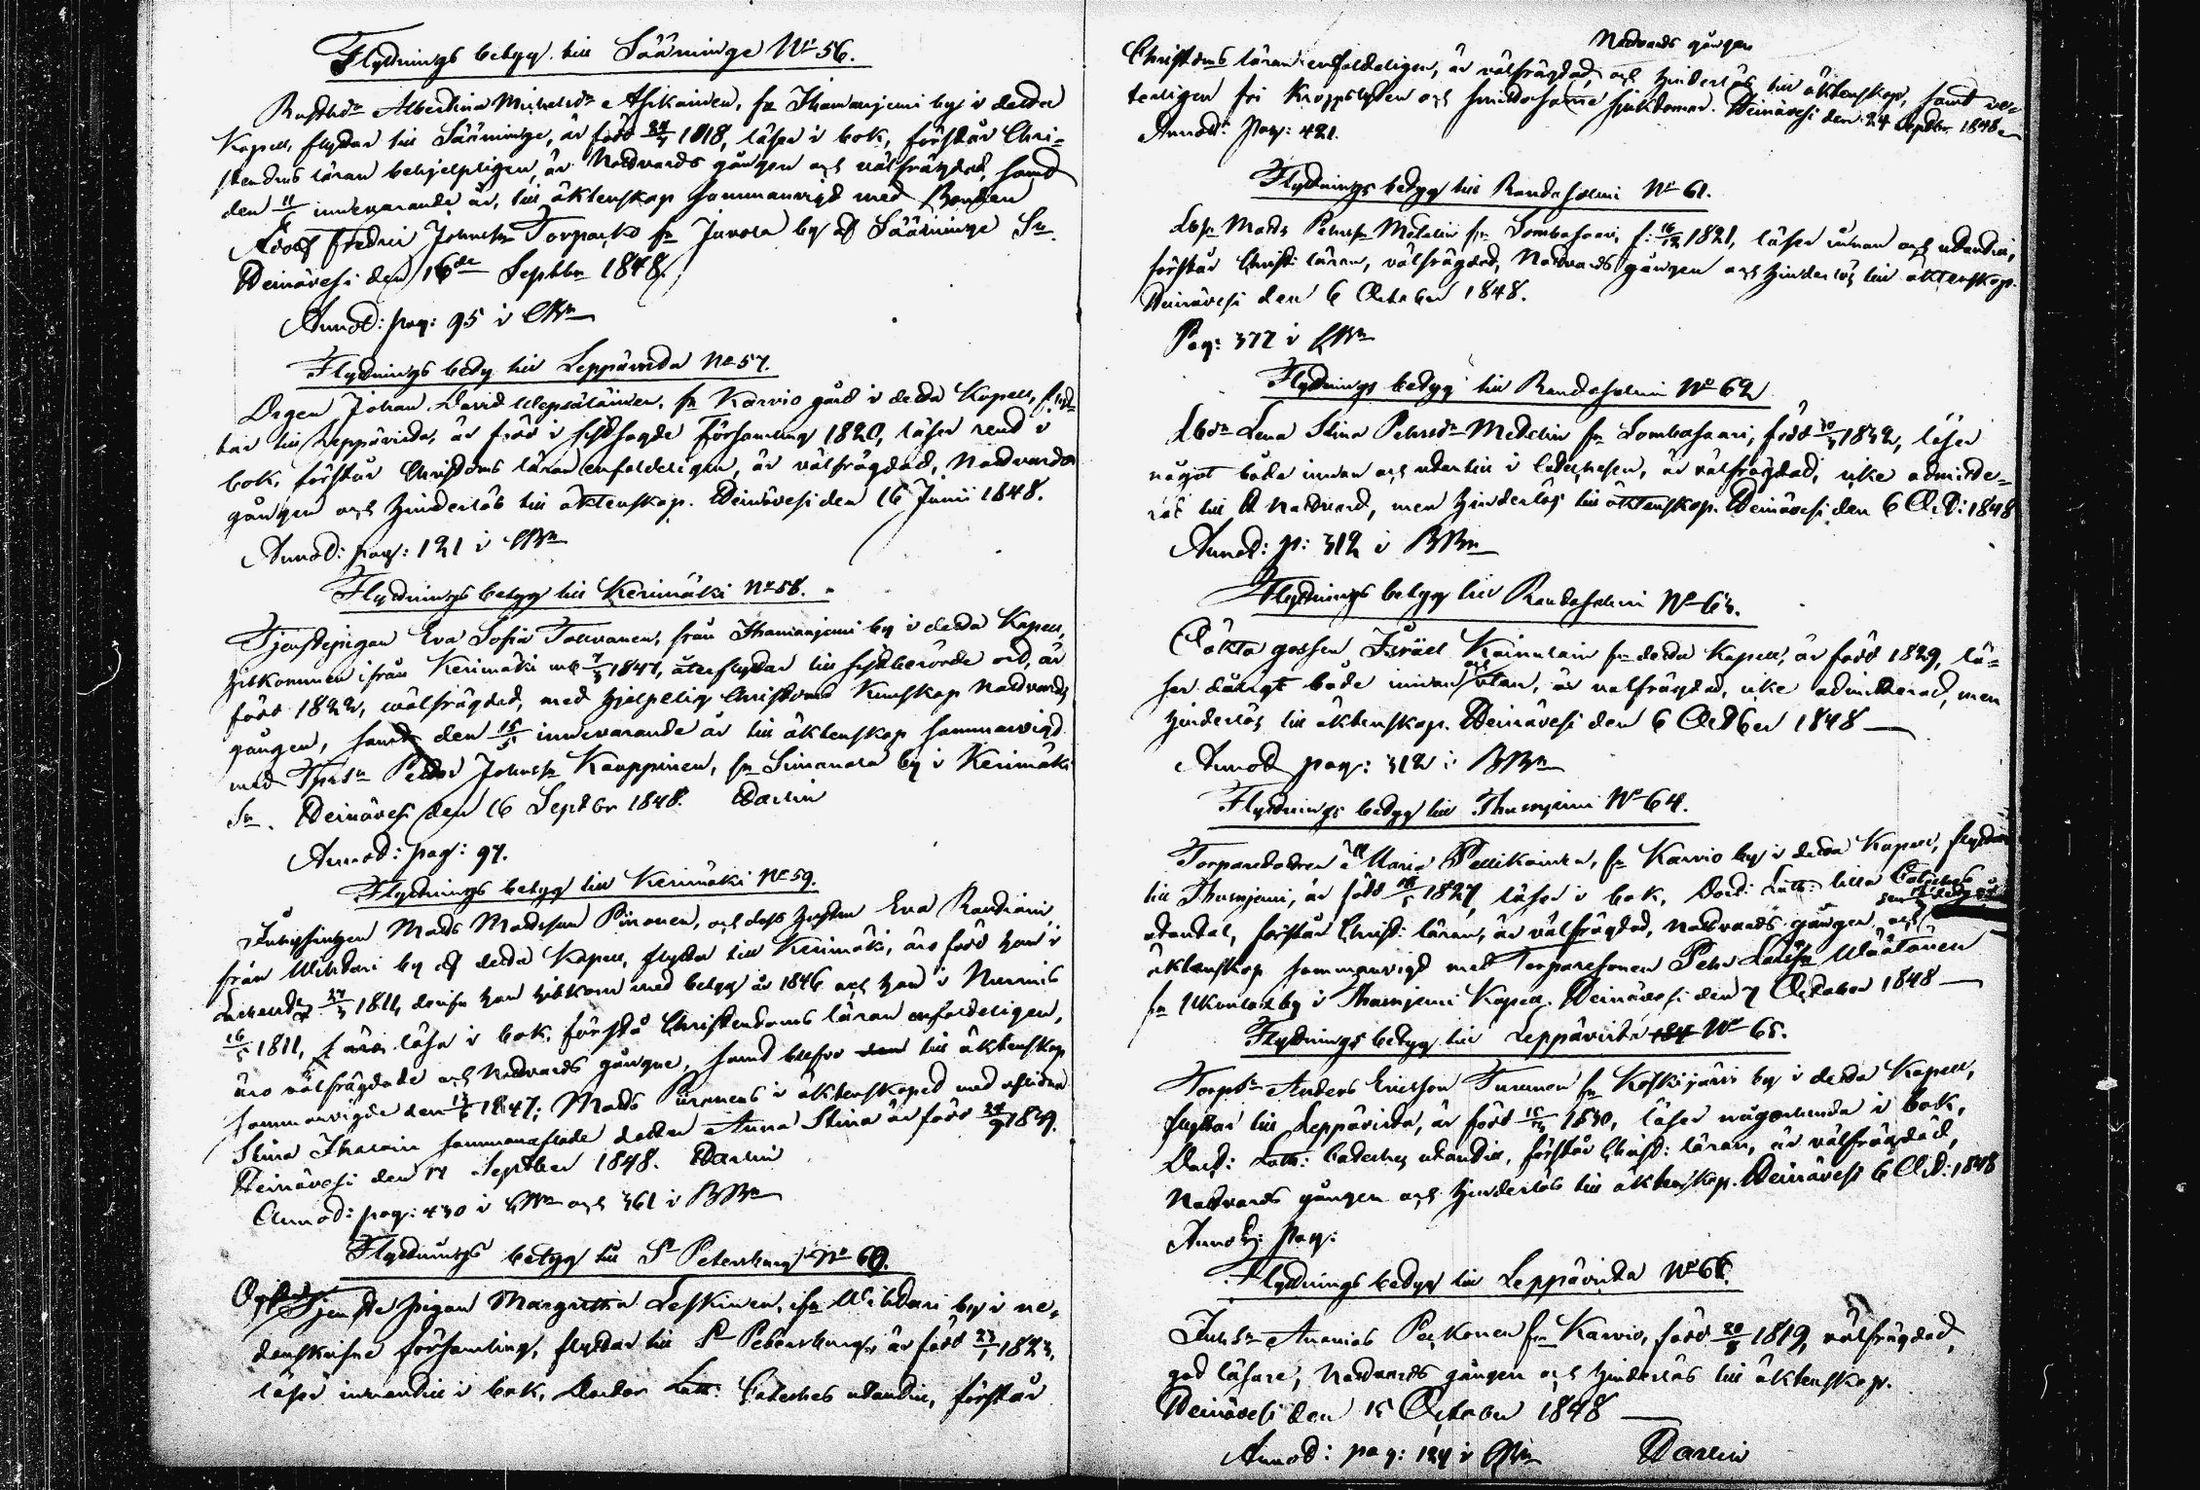 Flyttnings betyg till Sääminge No 56.
Bustdr Albertina Michelsdr Asikainen, fn Ihamaniemi by i detta
Kapell, flyttar till Sääminge, är född 24/4 1818, läser i bok, förstår Chri-
stendms läran behjelpligen, är Nattvards gången och välfrägdad, samt
den 11/6 innevarande år, till äktenskap sammanvigd med Bonden
Adolf Fredric Johansn Torpacko fn Juvola by af Sääminge Sn.
Heinävesi den 16de Septbr 1848.
Annot: pag: 95 i
Flyttnings betyg till Leppävirta No 57.
Drgen Johan David Wepsäläinen, fn Karvio gård i detta Kapell, flyt-
tar till Leppävirta, är född i sistsagde Församling 1820, läser rent i
bok, förstår Christdoms läran enfaldeligen, är välfrägdad, Nattvards
gången och hinderlös till äktenskap. Heinävesi den 16 Junii 1848.
Annot: pag: 121 i
Flyttnings betyg till Kerimäki No 58.
Tjenstepigan Eva Sofia Tolvanen, från Ihamaniemi by i detta Kapell,
hitkommen ifrån Kerimäki 1847, återflyttar till sistberörde ort, är
född 1822, wälfrägdad, med hjelpelig Christdoms Kunskap Nattvards
gången, samt den 15/5 innevarande år till äktenskap sammanvigd
med Petter Johansn Kauppinen, fn Simanala by i Kerimäki
Sn. Heinävesi den 16 Septbr 1848.
Annot: pag: 97.
Flyttnings betyg till Kerimäki No 59.
Inhysingen Mats Matsson Piironen, och dess hustru Eva Rautiain,
från Wihtari by af detta Kapell, flytta till Kerimäki, äro född han i
27/3 1811, hitkom med betyg år 1846 och hon i Nurmis
16/5 1811, läsa i bok, förstå Christendoms läran enfaldeligen,
äro välfrägdade och Nattvards gångne, samt till äktenskap
sammanvigde den 1847; Mats Piironens i äktenskapet med aflidna
Stina sammanaflade dotter Anna Stina är född 1839.
Heinävesi den 17 September 1848.
Annot: pag: 430 i och 361 i
Flyttnings betyg till St Petersburg No 60.
Tjenste pigan Margretha Leskinen, ifrn Wihtari by i ne-
danskrifne församling, flyttar till St Petersburg, är född 23/1 1823,
läser innantill i bok, Doctor Luth: Cateches utantill, förstår
Nattvards gången
Christdoms läran enfaldeligen, är välfrägdad, och hinderlös till äktenskap, samt ve-
terligen fri Kroppslyten och smittosamme sjukdomar. Heinävesi den 24 Septbr 1848.
Annot: pag: 421.
Flyttnings betyg till Randasalmi No 61.
Mats Petersn Metelin fn Sombasaari, f: 16/12 1821, läser innan och utantill,
förstår Christi läran, välfrägdad, Nattvards gången och hinderlös till äktenskap.
Heinävesi den 6 October 1848.
Pag: 377 i
Flyttnings betyg till Randasalmi No 62
Lena Stina Petersdr Metelin fn Sombasaari, född 1832, läser
något både innan och utantill i Catechesen, är välfrägdad, icke admitte-
rad till H Nattvard, men hinderlös till äktenskap. Heinävesi den 6 Oct: 1848
Annot: p: 312 i
Flyttnings betyg till Randasalmi No 63.
Oäkta gossen Israel Kainulain fn detta Kapell, är född 1829, lä-
ser dåligt både innan och utan, är välfrägdad, icke admitterad, men
hinderlös till äktenskap. Heinävesi den 6 October 1848
Annot pag: 312 i
Flyttnings betyg till Thusniemi No 64.
Torparedottren Maria Pellikainen, fn Karvio by i detta Kapell, flyttar
till Thusniemi, är född 1827, läser i bok, Doct: Luth: lilla Cateches
utantill, förstår Christ: läran, är välfrägdad, nattvards gången och
äktenskap sammanvigd med Torparesonen Petr Wäätänen
fn by i Thusniemi Kapell. Heinävesi den 7 October 1848
Flyttnings betyg till Leppävirta No 65.
Torpsn Anders Ericsson Turunen fn Koskijärvi by i detta Kapell,
flyttar till Leppävirta, är född 1830, läser någorlunda i bok,
Doct: Luth: Catechs utantill, förstår Christ: läran, är välfrägdad,
Nattvards gången och hinderlös till äktenskap. Heinävesi 6 Oct: 1848
Annot: pag:
Flyttnings betyg till Leppävirta No 66.
Inhsn Ananias Pakkonen fn Karvio, född 1819, välfrägdad,
god läsare, Nattvards gången och hinderlös till äktenskap.
Heinävesi den 15 October 1848
Annot: pag: 124 i